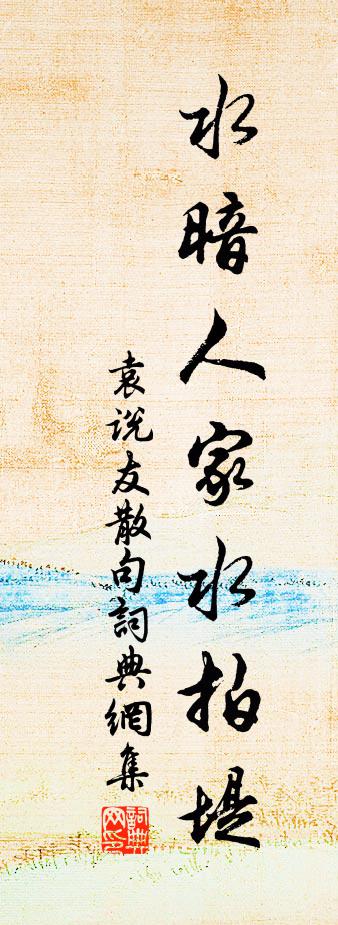 水暗人家水拍堤
袁说友散句詞典網集
詞典网印